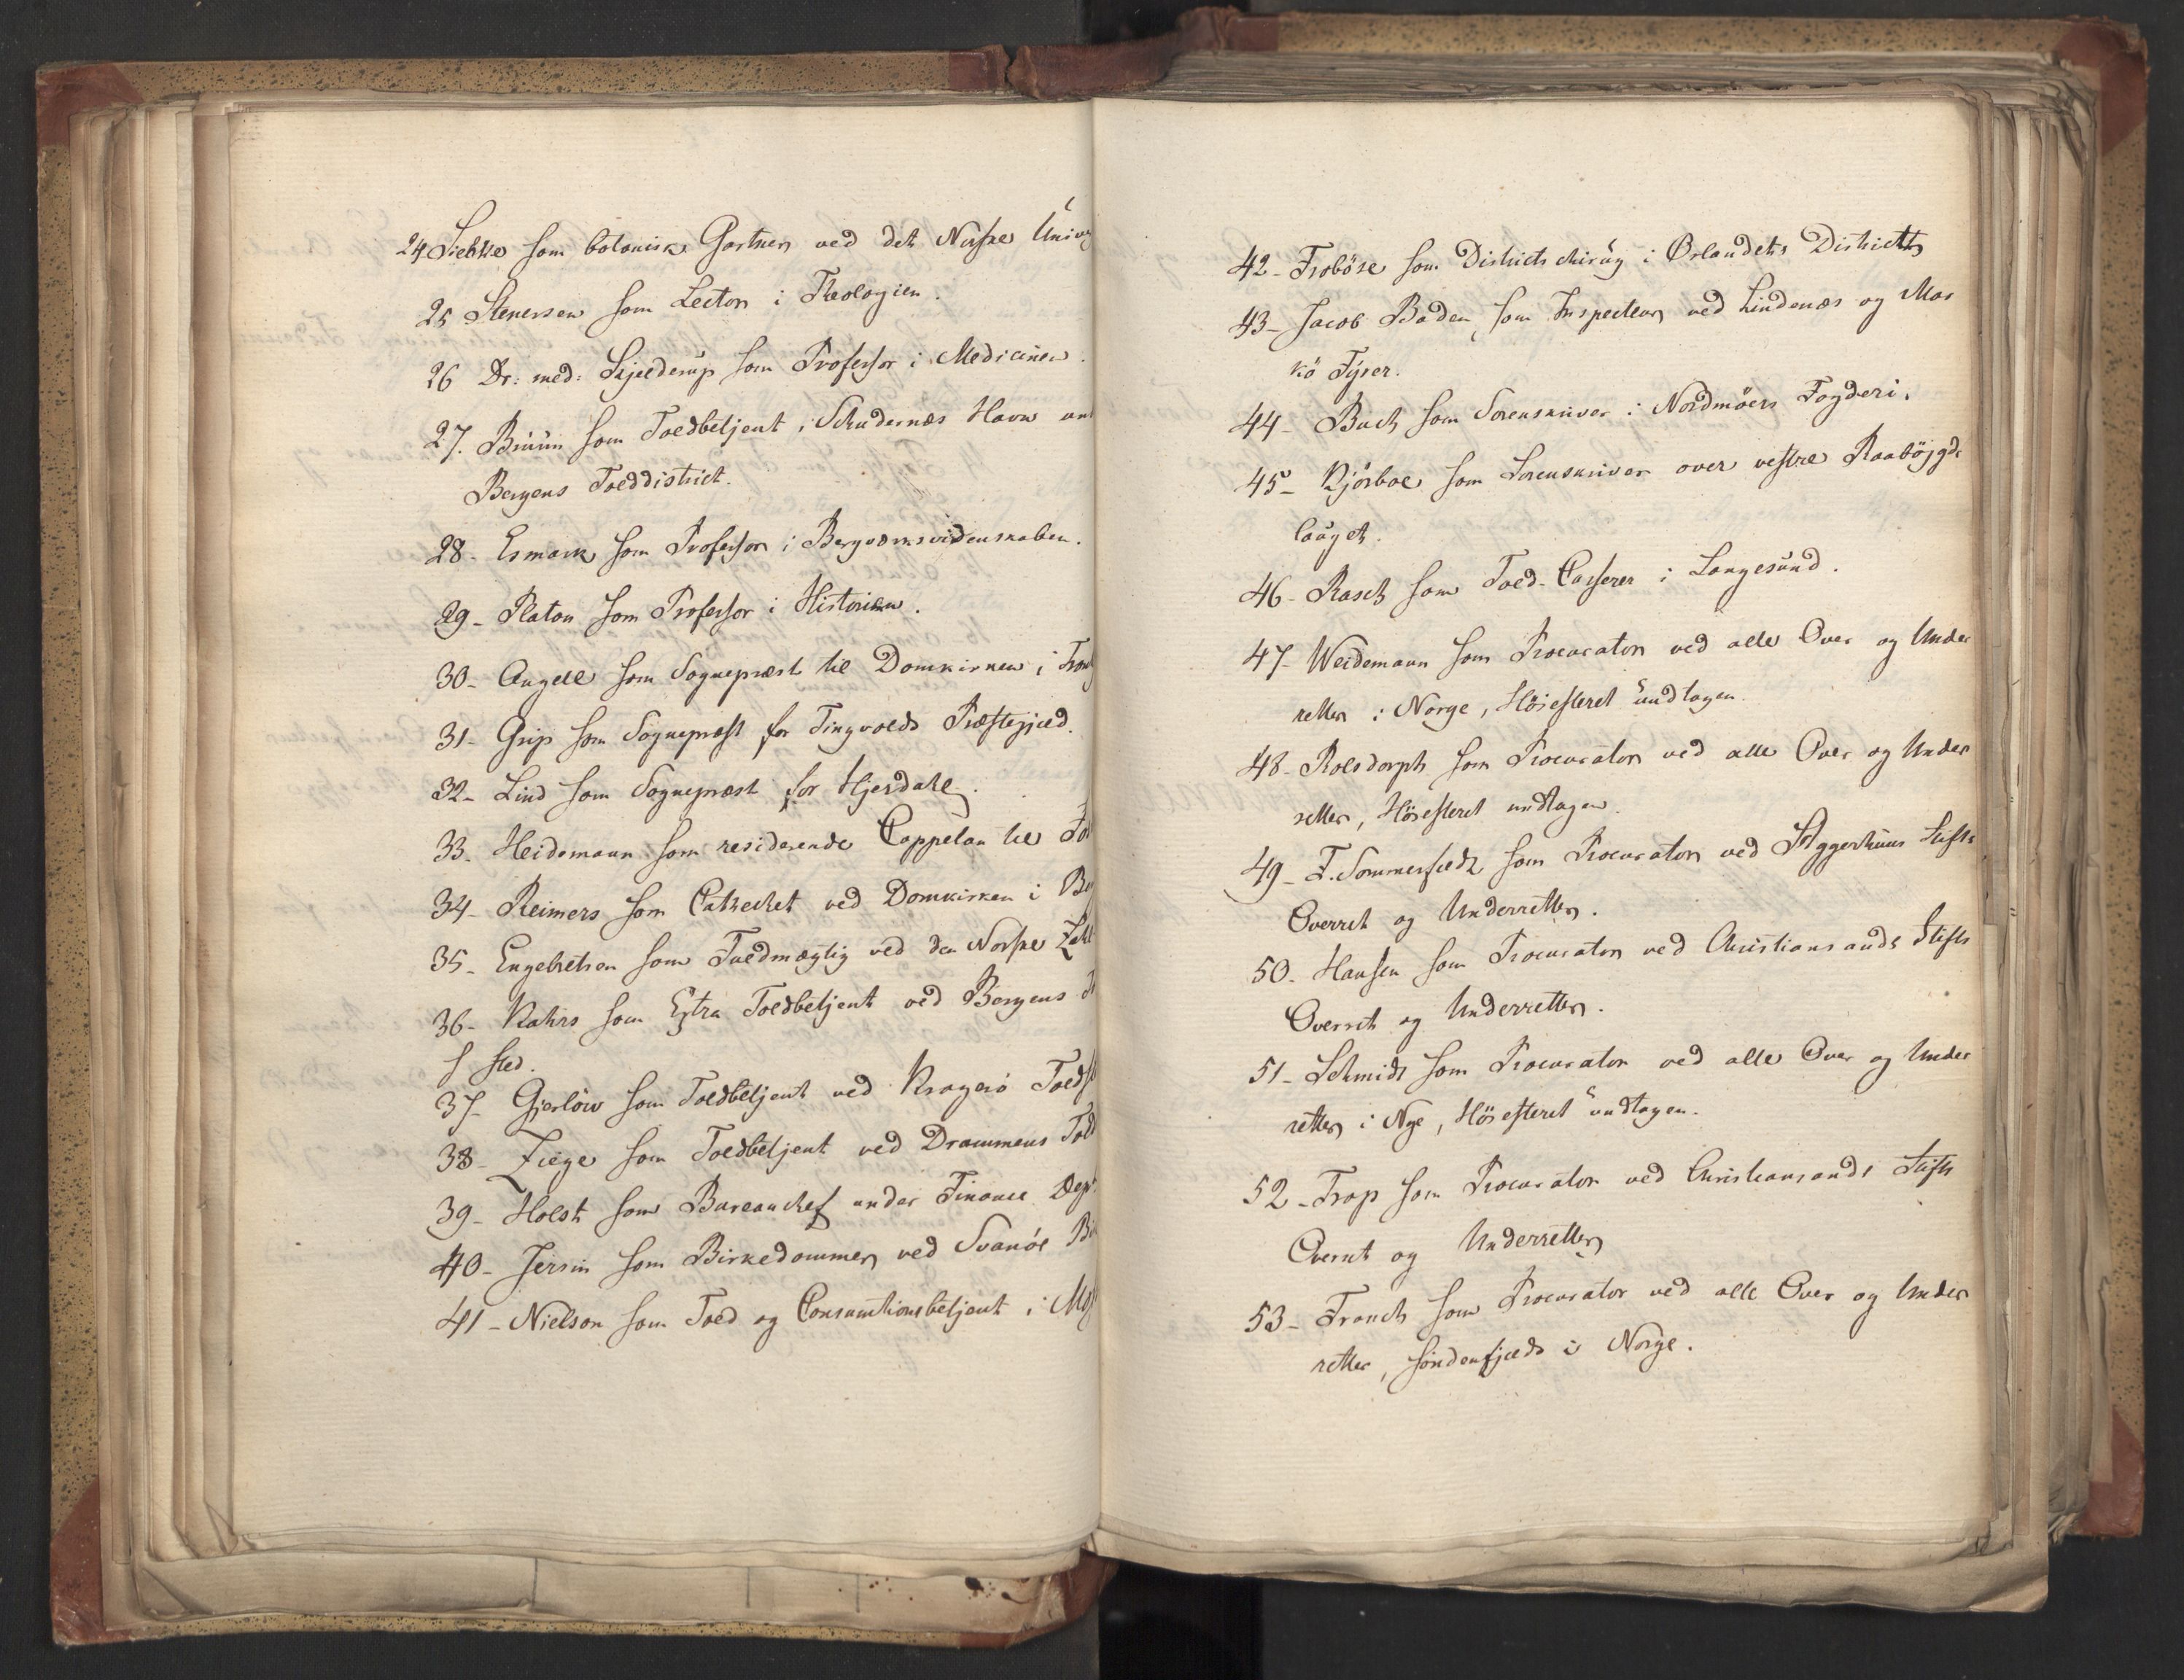 24 Siebke som botanisk Gartner ved det Norske Univ
25 Stenersen som Lector i Theologien.
26 Dr: med: Skjelderup som Professor i Medicinen.
27. Bruun som Toldbetjent i Schudesnæs Havn un
Bergens Tolddistrict.
28- Esmark som Professor i Bergværksvidenskaben.
29- Platou som Professor i Historien.
30- Angell som Sognepræst til Domkirken i Tron
31- Grip som Sognepræst for Tingvolds Præstegjæld.
32- Lind som Sognepræst for Hjerdahl.
33. Heidemann som residerende Cappelan til
34- Reimers som Catechet ved Domkirken i Be
35- Engebretsen som Fuldmægtig ved den Norske
36- Kahrs som Extra Toldbetjent ved Bergens
sted.
37- Gjerløw som Toldbetjent ved Kragerö Tolds
38- Ziege som Toldbetjent ved Drammens Told
39- Holst som Bureauchef under Finance Dept
40- Jersin som Birkedommer ved Svanöe Bi
41- Nielson som Told og Consumtionsbetjent i Mos
42- Froböse som Districtschirurg i Ørlandets District
43- Jacob Baden som Inspecteur ved Lindenæs og Mar
kö Fyrer.
44- Buch som Sorenskriver i Nordmöers Fogderi.
45- Kjörboe som Sorenskriver over vestre Raaböjgde
lauget.
46- Rasch som Told-Casserer i Langesund.
47- Weidemann som Procurator ved alle Over og Under
retter i Norge, Höiesteret undtagen.
48- Rolsdorph som Procurator ved alle Over og Under
retter, Höiesteret undtagen.
49- F. Sommerfeldt som Procurator ved Aggerhuus Stifts
Overret og Underretter.
50- Hansen som Procurator ved Christiansands Stifts
Overret og Underretter.
51- Schmidt som Procurator ved alle Over og Under
retter i Nge, Höiesteret undtagen.
52- Trap som Procurator ved Christiansands Stifts
Overret og Underretter
53- Franch som Procurator ved alle Over og Under
retter, söndenfjelds i Norge.